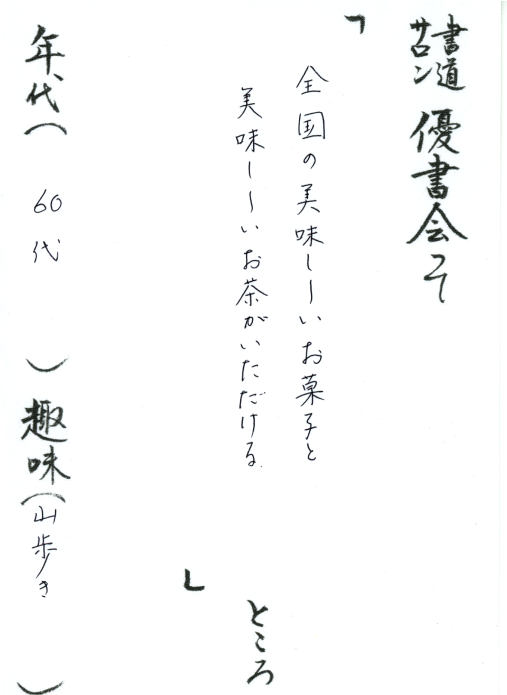 書道サロン 優書会って
「全国の美味し〜いお菓子と
美味し〜いお茶がいただける。」
ところ
年代（60代）趣味（山歩き）